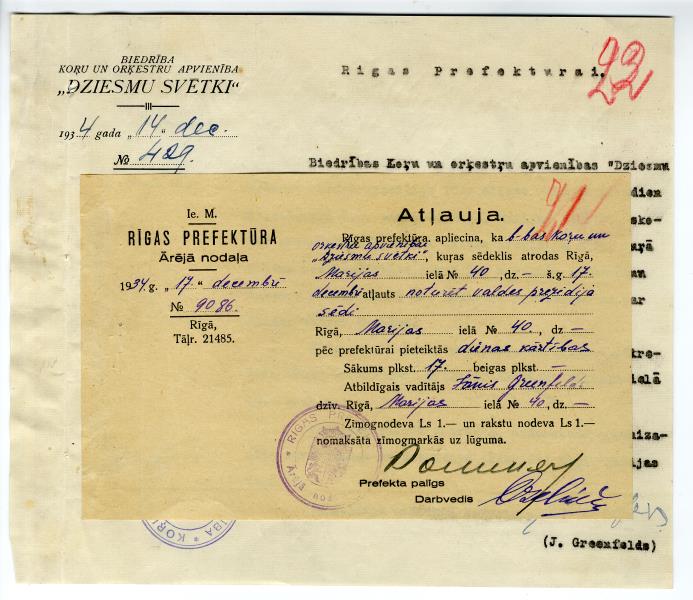 BIEDRĪBA
KOŖU UN ORĶESTRU APVIENĪBA
„DZIESMU SVĒTKI“
1934 gada „14“ dec.
№ 429.
Rīgas Prefekturai.
22
Biedrības Koŗu un orķestŗu apvienības "Dziesmu
dien
ske-
kre-
ielā
niza-
ijas
(J. Greenfelds)
Ie. M.
RĪGAS PREFEKTŪRA
Ārējā nodaļa
1934 g. „17“ decembrī
№ 9086.
Rīgā,
Tāļr. 21485.
Atļauja.
21
Rīgas prefektūra apliecina, ka b-bas koŗu un
orķestru apvienības
„Dziesmu svētki“, kuŗas sēdeklis atrodas Rīgā,
Marijas ielā № 40, dz. — š. g. 17.
decembrī atļauts noturēt valdes prezidija
sēdi
Rīgā, Marijas ielā № 40, dz. —
pēc prefektūrai pieteiktās dienas kārtības
Sākums plkst. 17. beigas plkst. —
Atbildīgais vadītājs Jānis Greenfelds
dzīv. Rīgā, Marijas ielā № 40, dz. —
Zīmognodeva Ls 1.— un rakstu nodeva Ls 1.—
nomaksāta zīmogmarkās uz lūguma.
Prefekta palīgs
Darbvedis
RĪGAS PREF